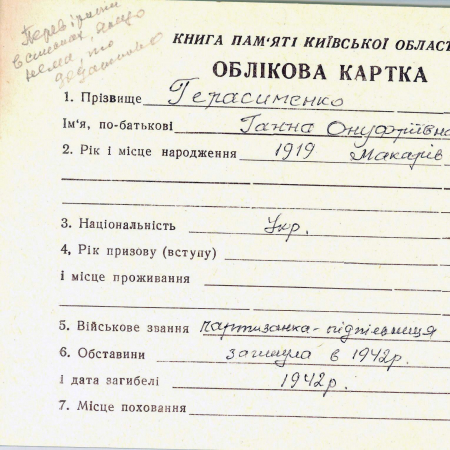 Перевірити
в списках, якщо
нема, то
додатково
КНИГА ПАМ'ЯТІ КИЇВСЬКОЇ ОБЛАСТ
ОБЛІКОВА КАРТКА
1. Прізвище Герасименко
Ім'я, по-батькові Ганна Онуфріївна
2. Рік і місце народження 1919 Макарів
3. Національність Укр.
4, Рік призову (вступу)
і місце проживання
5. Військове звання партизанка-підпільниця
6. Обставини загинула в 1942р.
і дата загибелі 1942р.
7. Місце поховання